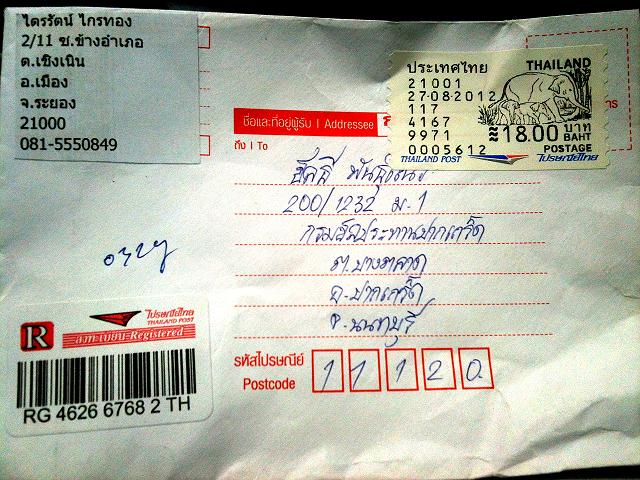 ไตรรัตน์ ไกรทอง
2/11 ซ.ข้างอำเภอ
ต.เชิงเนิน
อ.เมือง
จ.ระยอง
21000
081-5550849
ประเทศไทย THAILAND
21001
27-08-2012
117
4167
9971
0005612
≈18.00 บาท
BAHT
POSTAGE
THAILAND POST ไปรษณีย์ไทย
ชื่อและที่อยู่ผู้รับ | Addressee
ถึง | To
200/1232 ม.1
กรมชลประทานปากเกร็ด
ต.บางตลาด
อ.ปากเกร็ด
จ.นนทบุรี
รหัสไปรษณีย์
Postcode
11120
ไปรษณีย์ไทย
THAILAND POST
R
ลงทะเบียน-Registered
RG 4626 6768 2 TH